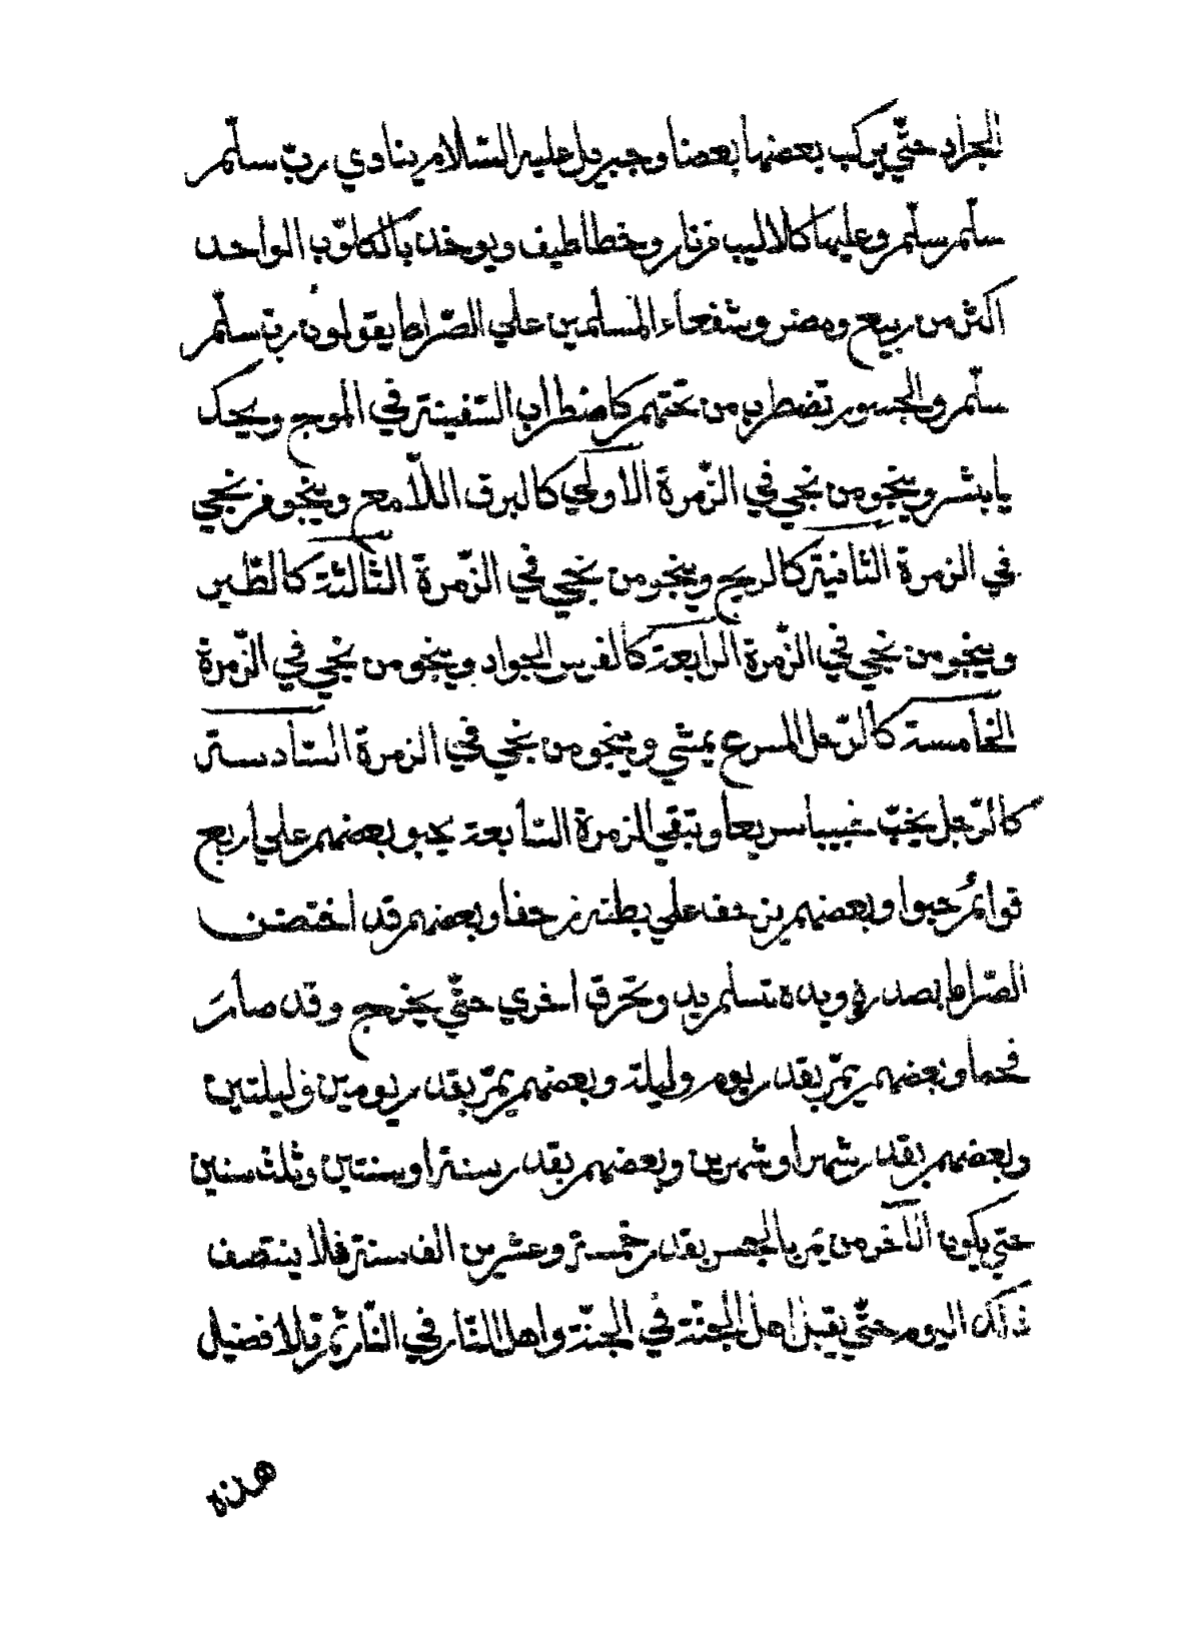 الجراد حتّي يركب بعضها بعضا وجبريل عليه السّلام ينادي ربّ سلّم
سلّم سلّم وعليها كلاليب من نار وخطاطيف ويوخذ بالكلوّب الواحد
اكثر من ربيع ومضر وشفعاء المسلمين علي الصّراط يقولون ربّ سلّم
سلّم والجسور تضطرب من تحتهم كاضطراب السّفينة في الموج ويحك
يا بشر وينجو من نجي في الزّمرة الاولي كالبرق اللّامع وينجو من نجي
في الزمرة الثانية كالريح وينجو من نجي في الزّمرة الثالثة كالطّير
وينجو من نجي في الزّمرة الرابعة كالفرس الجواد وينجو من نجي في الزّمرة
الخامسة كالرّجل المسرع يمشي وينجو من نجي في الزمرة السّادسة
كالرّجل يخبّ خبيبا سريعا وتبقي الزمرة السّابعة يحبو بعضهم علي اربع
قوائم حبوا وبعضهم يزحف علي بطنه زحفا وبعضهم قد احتضن
الصّراط بصدره ويده تسلم يد وتحرق اخري حتّي يخرج وقد صار
فحما وبعضهم يمرّ بقدر يوم وليلة وبعضهم يمرّ بقدر يومين وليلتين
وبعضهم بقدر شهر او شهرين وبعضهم بقدر سنة او سنتين وثلث سنين
حتي يكون الآخر من يمر بالجسر بقدر خمسة وعشرين الف سنة فلا ينتصف
ذلك اليوم حتّي يقبل اهل الجنّة في الجنّة واهل النّار في النّار ثمّ تلا فضيل
هذه